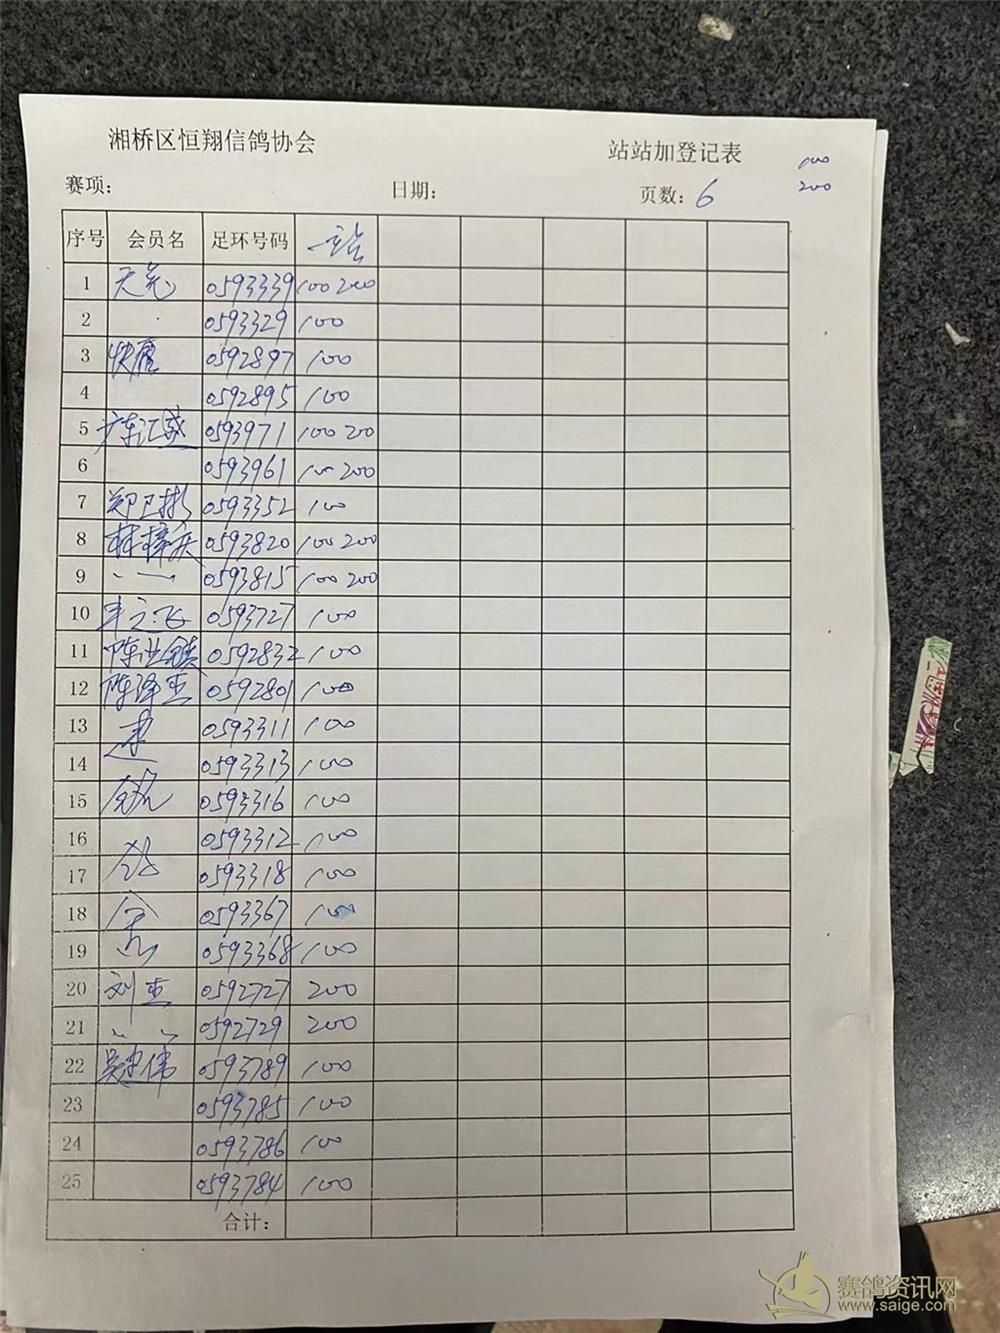 湘桥区恒翔信鸽协会 站站加登记表 100
赛项: 日期: 页数: 6 200
序号 会员名 足环号码 一站
1 0593339 100 200
2 0593329 100
3 快鹰 0592897 100
4 0592895 100
5 广东汇盛 0593971 100 200
6 0593961 100 200
7 郑卫彬 0593352 100
8 林梓庆 0593820 100 200
9 0593815 100 200
10 0593727 100
11 陈洪镇 0592832 100
12 陈泽亚 0592801 100
13 建 0593311 100
14 0593313 100
15 0593316 100
16 0593312 100
17 鸽 0593318 100
18 0593367 100
19 0593368 100
20 刘亚 0592727 200
21 〃 〃 0592729 200
22 吴建伟 0593789 100
23 0593785 100
24 0593786 100
25 0593784 100
合计:
赛鸽资讯网
www.saige.com